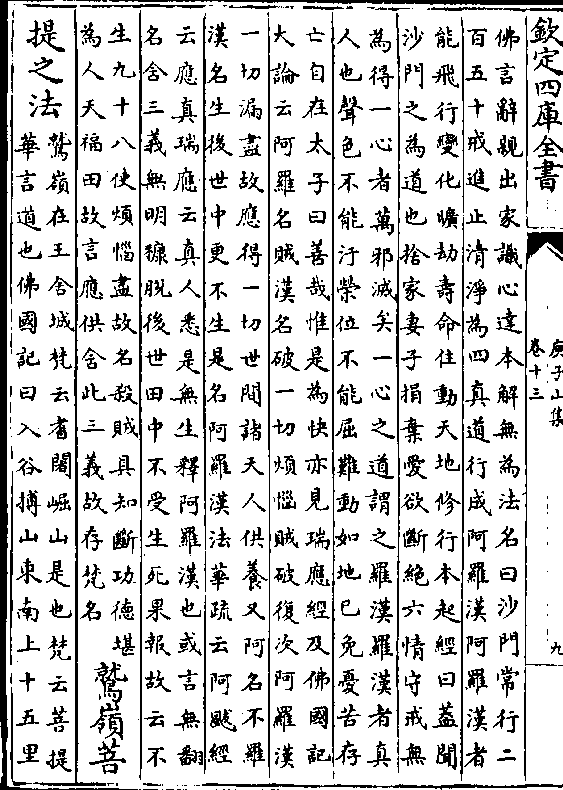 欽定四庫全書
庾子山集
卷十三
九
佛言辭親出家識心達本解無為法名曰沙門常行二
百五十戒進止清淨為四真道行成阿羅漢阿羅漢者
能飛行變化曠劫壽命住動天地修行本起經曰蓋聞
沙門之為道也捨家妻子捐棄愛欲斷絶六情守戒無
為得一心者萬邪滅矣一心之道謂之羅漢羅漢者真
人也聲色不能汙榮位不能屈難動如地已免憂苦存
亡自在太子曰善哉惟是為快亦見瑞應經及佛國記
大論云阿羅名賊漢名破一切煩惱賊破復次阿羅漢
一切漏盡故應得一切世間諸天人供養又阿名不羅
漢名生後世中更不生是名阿羅漢法華疏云阿颰經
云應真瑞應云真人悉是無生釋阿羅漢也或言無翻
名含三義無明糠脫後世田中不受生死果報故云不
生九十八使煩惱盡故名殺賊具知斷功德堪
為人天福田故言應供含此三義故存梵名
鷲嶺菩
提之法
鷲嶺在王舍城梵云耆闍崛山是也梵云菩提
華言道也佛國記曰入谷搏山東南上十五里